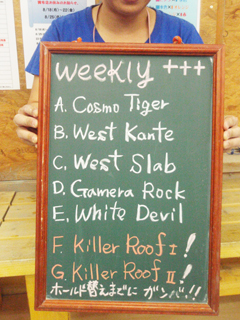 weekly +++
A. Cosmo Tiger
B. West Kante
C. West Slab
D. Gamera Rock
E. White Devil
F. Killer Roof I !
G. Killer Roof II !
ホールド替えまでに ガンバ!!